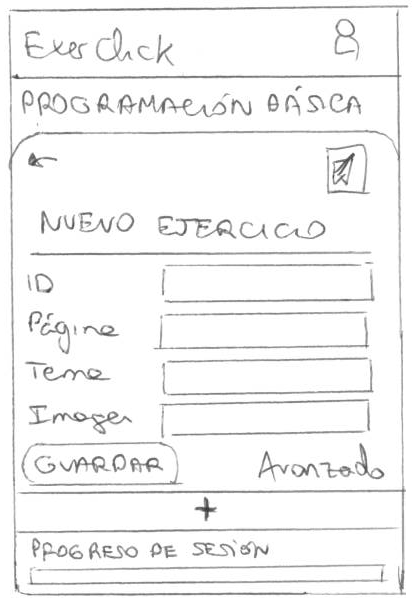 ExerClick
PROGRAMACIÓN BÁSICA
NUEVO EJERCICIO
ID
Página
Tema
Imagen
GUARDAR
Avanzado
+
PROGRESO DE SESIÓN